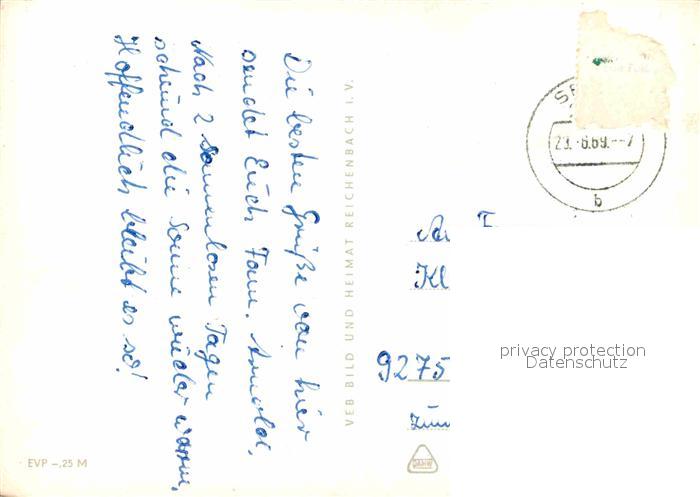 Die besten Grüße von hier
sendet Euch Fam. Arnold.
Nach 2 Sonnenlosen Tagen
scheind die Sonne wieder warm,
Hoffendlich bleibt es so!
VEB BILD UND HEIMAT REICHENBACH I. V.
EVP –,25 M
29.-6.69.--7
b
Kl
9275
privacy protection
Datenschutz